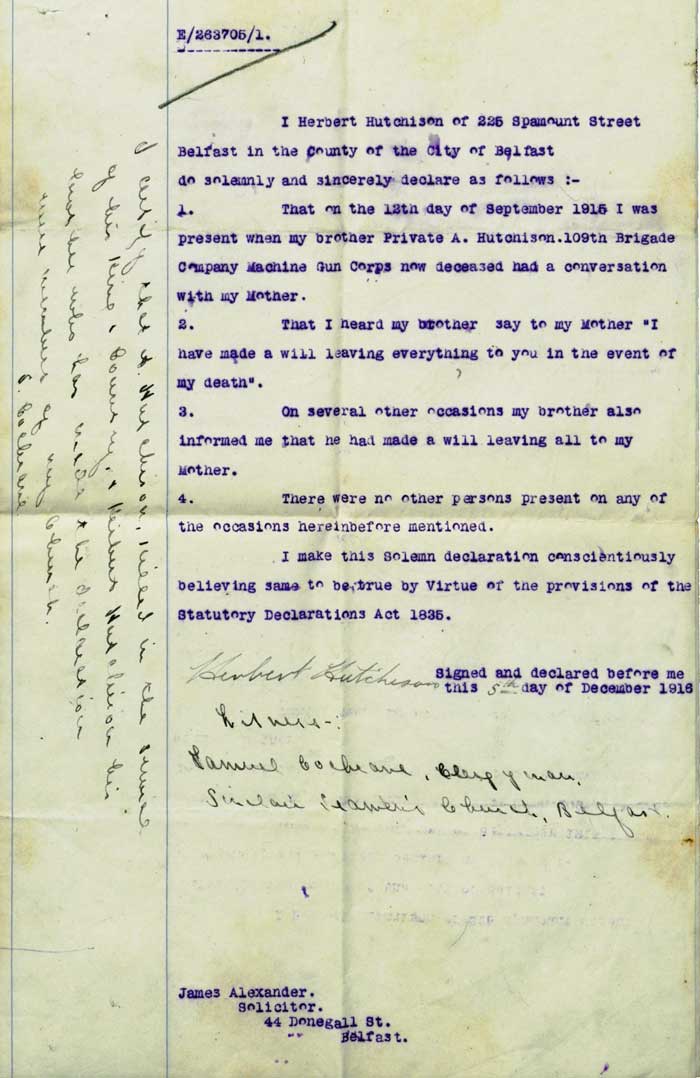 E/263705/1.
I Herbert Hutchison of 225 Spamount Street
Belfast in the County of the City of Belfast
do solemnly and sincerely declare as follows :-
1. That on the 12th day of September 1915 I was
present when my brother Private A. Hutchison.109th Brigade
Company Machine Gun Corps now deceased had a conversation
with my Mother.
2. That I heard my brother say to my Mother "I
have made a will leaving everything to you in the event of
my death".
3. On several other occasions my brother also
informed me that he had made a will leaving all to my
Mother.
4. There were no other persons present on any of
the occasions hereinbefore mentioned.
I make this Solemn declaration conscientiously
believing same to be true by Virtue of the provisions of the
Statutory Declarations Act 1835.
Herbert Hutchison
Signed and declared before me
this 5th day of December 1916
Witness-:
Samuel Cochrane, Clergyman.
Sinclair Seamen's Church, Belfast.
James Alexander.
Solicitor.
44 Donegall St.
Belfast.
I certify that A. Hutchison, killed in the service
of his King & Country, & Herbert Hutchison his
brother who has made the declaration
were members of my Church.
S. Cochrane